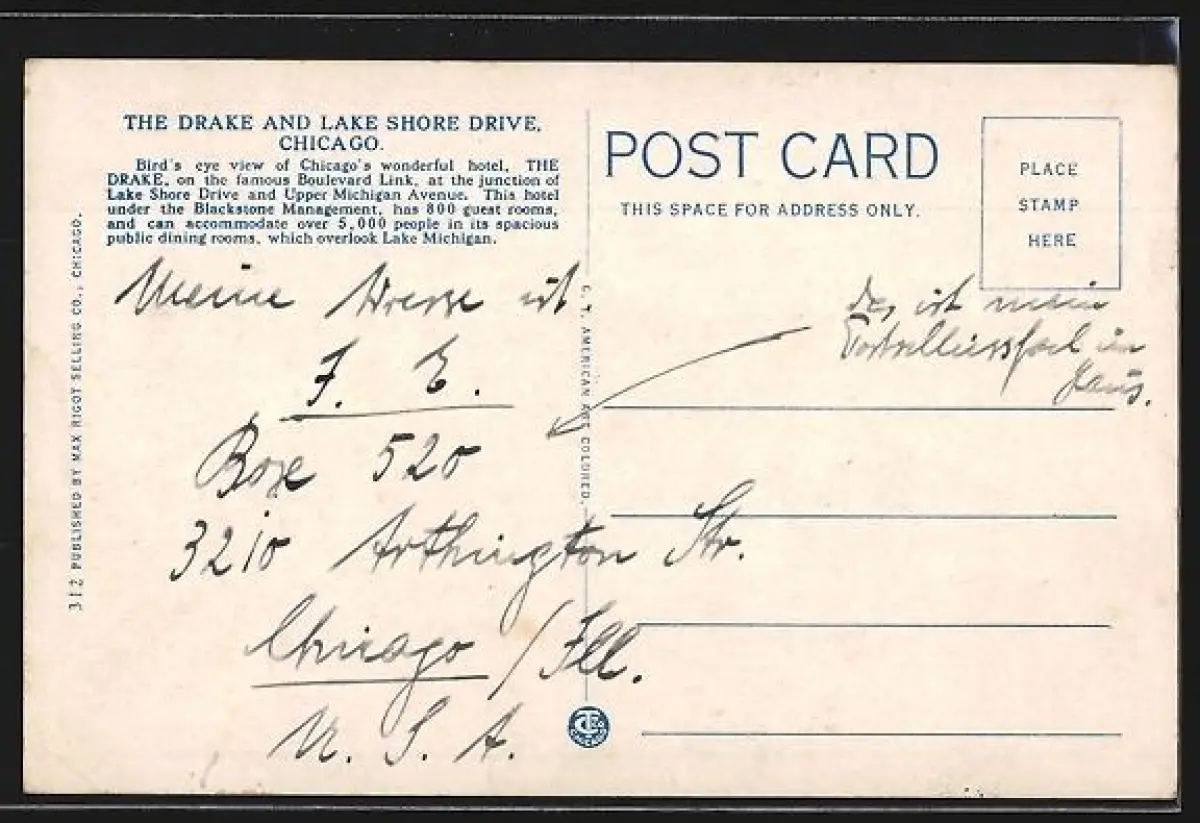 THE DRAKE AND LAKE SHORE DRIVE,
CHICAGO.
Bird's eye view of Chicago's wonderful hotel, THE
DRAKE, on the famous Boulevard Link, at the junction of
Lake Shore Drive and Upper Michigan Avenue. This hotel
under the Blackstone Management, has 800 guest rooms,
and can accommodate over 5,000 people in its spacious
public dining rooms, which overlook Lake Michigan.
312 PUBLISHED BY MAX RIGOT SELLING CO., CHICAGO.
Meine Adresse ist
F. E.
Box 520
3210 Arthington Str.
Chicago / Ill.
U. S. A.
C. T. AMERICAN ART COLORED.
POST CARD
THIS SPACE FOR ADDRESS ONLY.
PLACE
STAMP
HERE
ist mein
im
Haus.